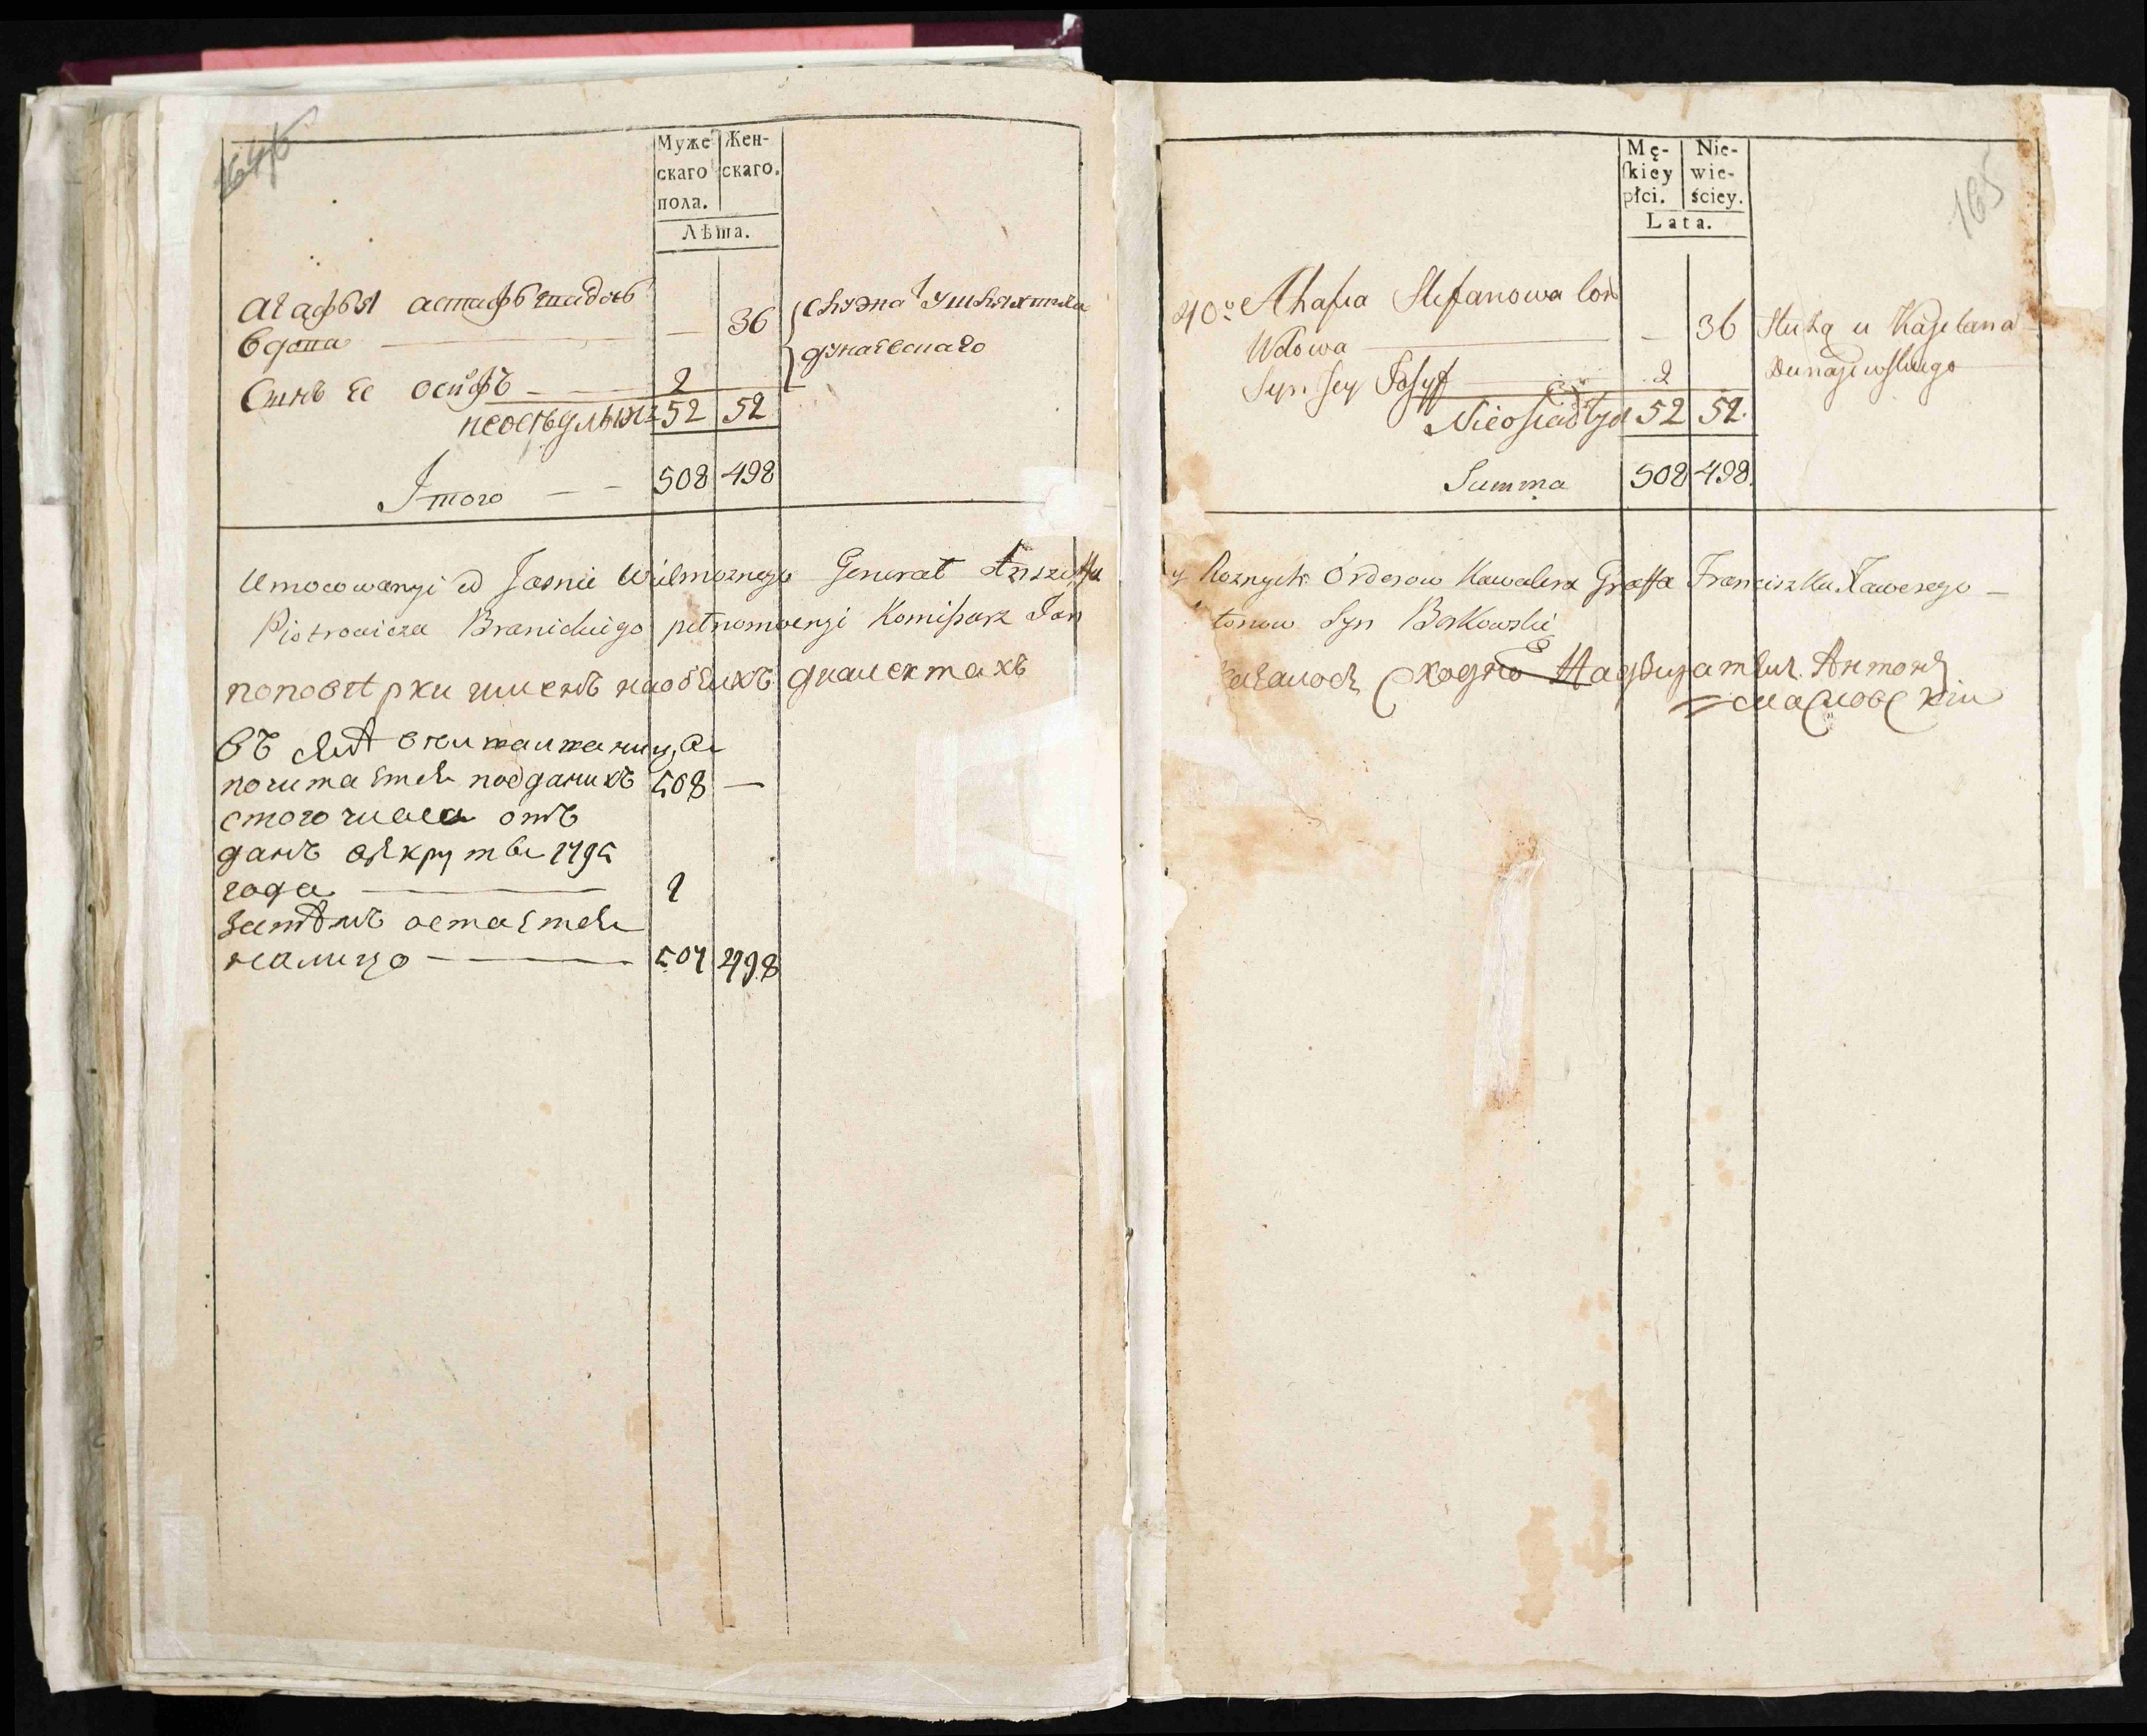 164б
Муже-
скаго
пола.
Жен-
скаго.
Лѣта.
Агафья
вдова — — 36
Синъ ее осифъ — 2
52 52
Ітого — — 508 498
Umocowanyi od Jasnie Wielmoznego Generał Anszeffa
Piotrowicza Branickiego pełnomocnyi Komisarz Jan
поповѣрки наобѣихъ диалектахъ
въ
почитаетса подданихъ 508 —
стого числа отъ
данъ врекрути 1795
года — 1
затѣмъ остаетса
налицо — 507 498
165
Mę-
skiey
płci.
Nie-
wie-
ściey.
Lata.
40. Ahafia Stefanowa
Wdowa — — 36 Służą u Kajetana
Syn Jey Josyf 2 Dunajewskiego
52 52.
Summa 508 498.
y Roznych Orderow Kawalera Graffa Franciszka Xawerego —
tonow Syn Borkowski
сходно Антонъ